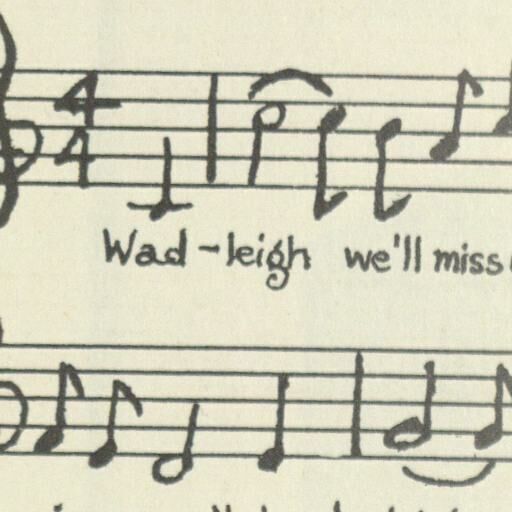 4
4
Wad-leigh we'll miss